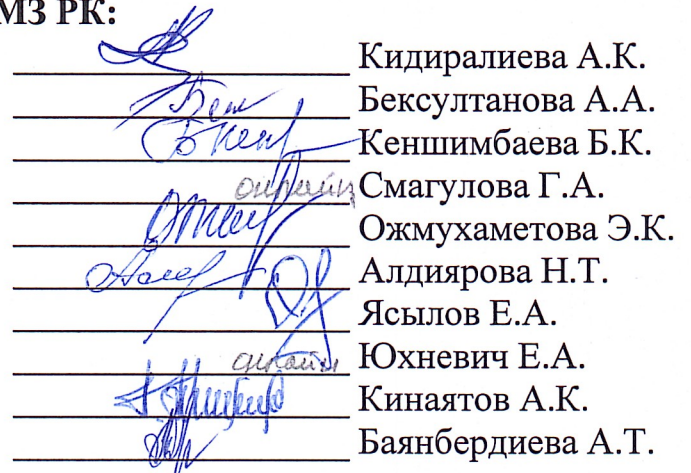 МЗ РК:
Кидиралиева А.К.
Бексултанова А.А.
Кеншимбаева Б.К.
онлайн Смагулова Г.А.
Ожмухаметова Э.К.
Алдиярова Н.Т.
Ясылов Е.А.
онлайн Юхневич Е.А.
Кинаятов А.К.
Баянбердиева А.Т.